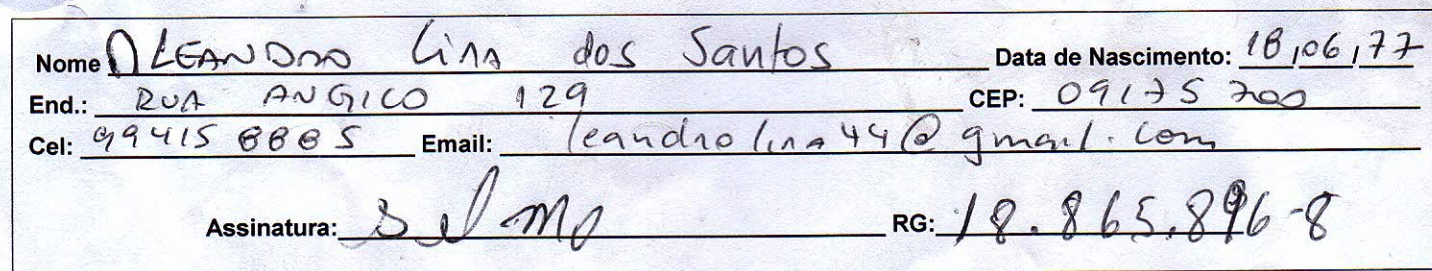 Nome OLEANDRO Lina dos Santos Data de Nascimento: 18/06/77
End.: RUA ANGICO 129 CEP: 09175 700
Cel: 99415 8885 Email: leandrolina44@gmail.com
Assinatura: RG: 18.865.896-8